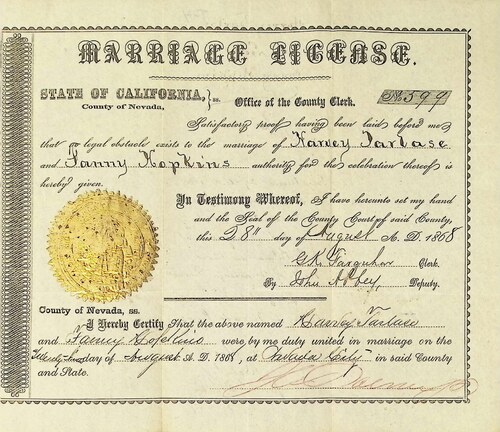 MARRIAGE LICENSE.
STATE OF CALIFORNIA, } ss. Office of the County Clerk. No. 599
County of Nevada,
Satisfactory proof having been laid before me
that no legal obstacle exists to the marriage of Harvey Tarlase
and Fanny Hopkins authority for the celebration thereof is
hereby given.
In Testimony Whereof, I have hereunto set my hand
and the Seal of the County Court of said County,
this 28" day of August A. D. 1868
G.K. Farquhar Clerk.
By John Abbey, Deputy.
County of Nevada, ss.
I Hereby Certify That the above named Harvey
and Fanny Hopkins were, by me, duly united in marriage on the
day of August A. D. 1868, at Nevada City in said County
and State.